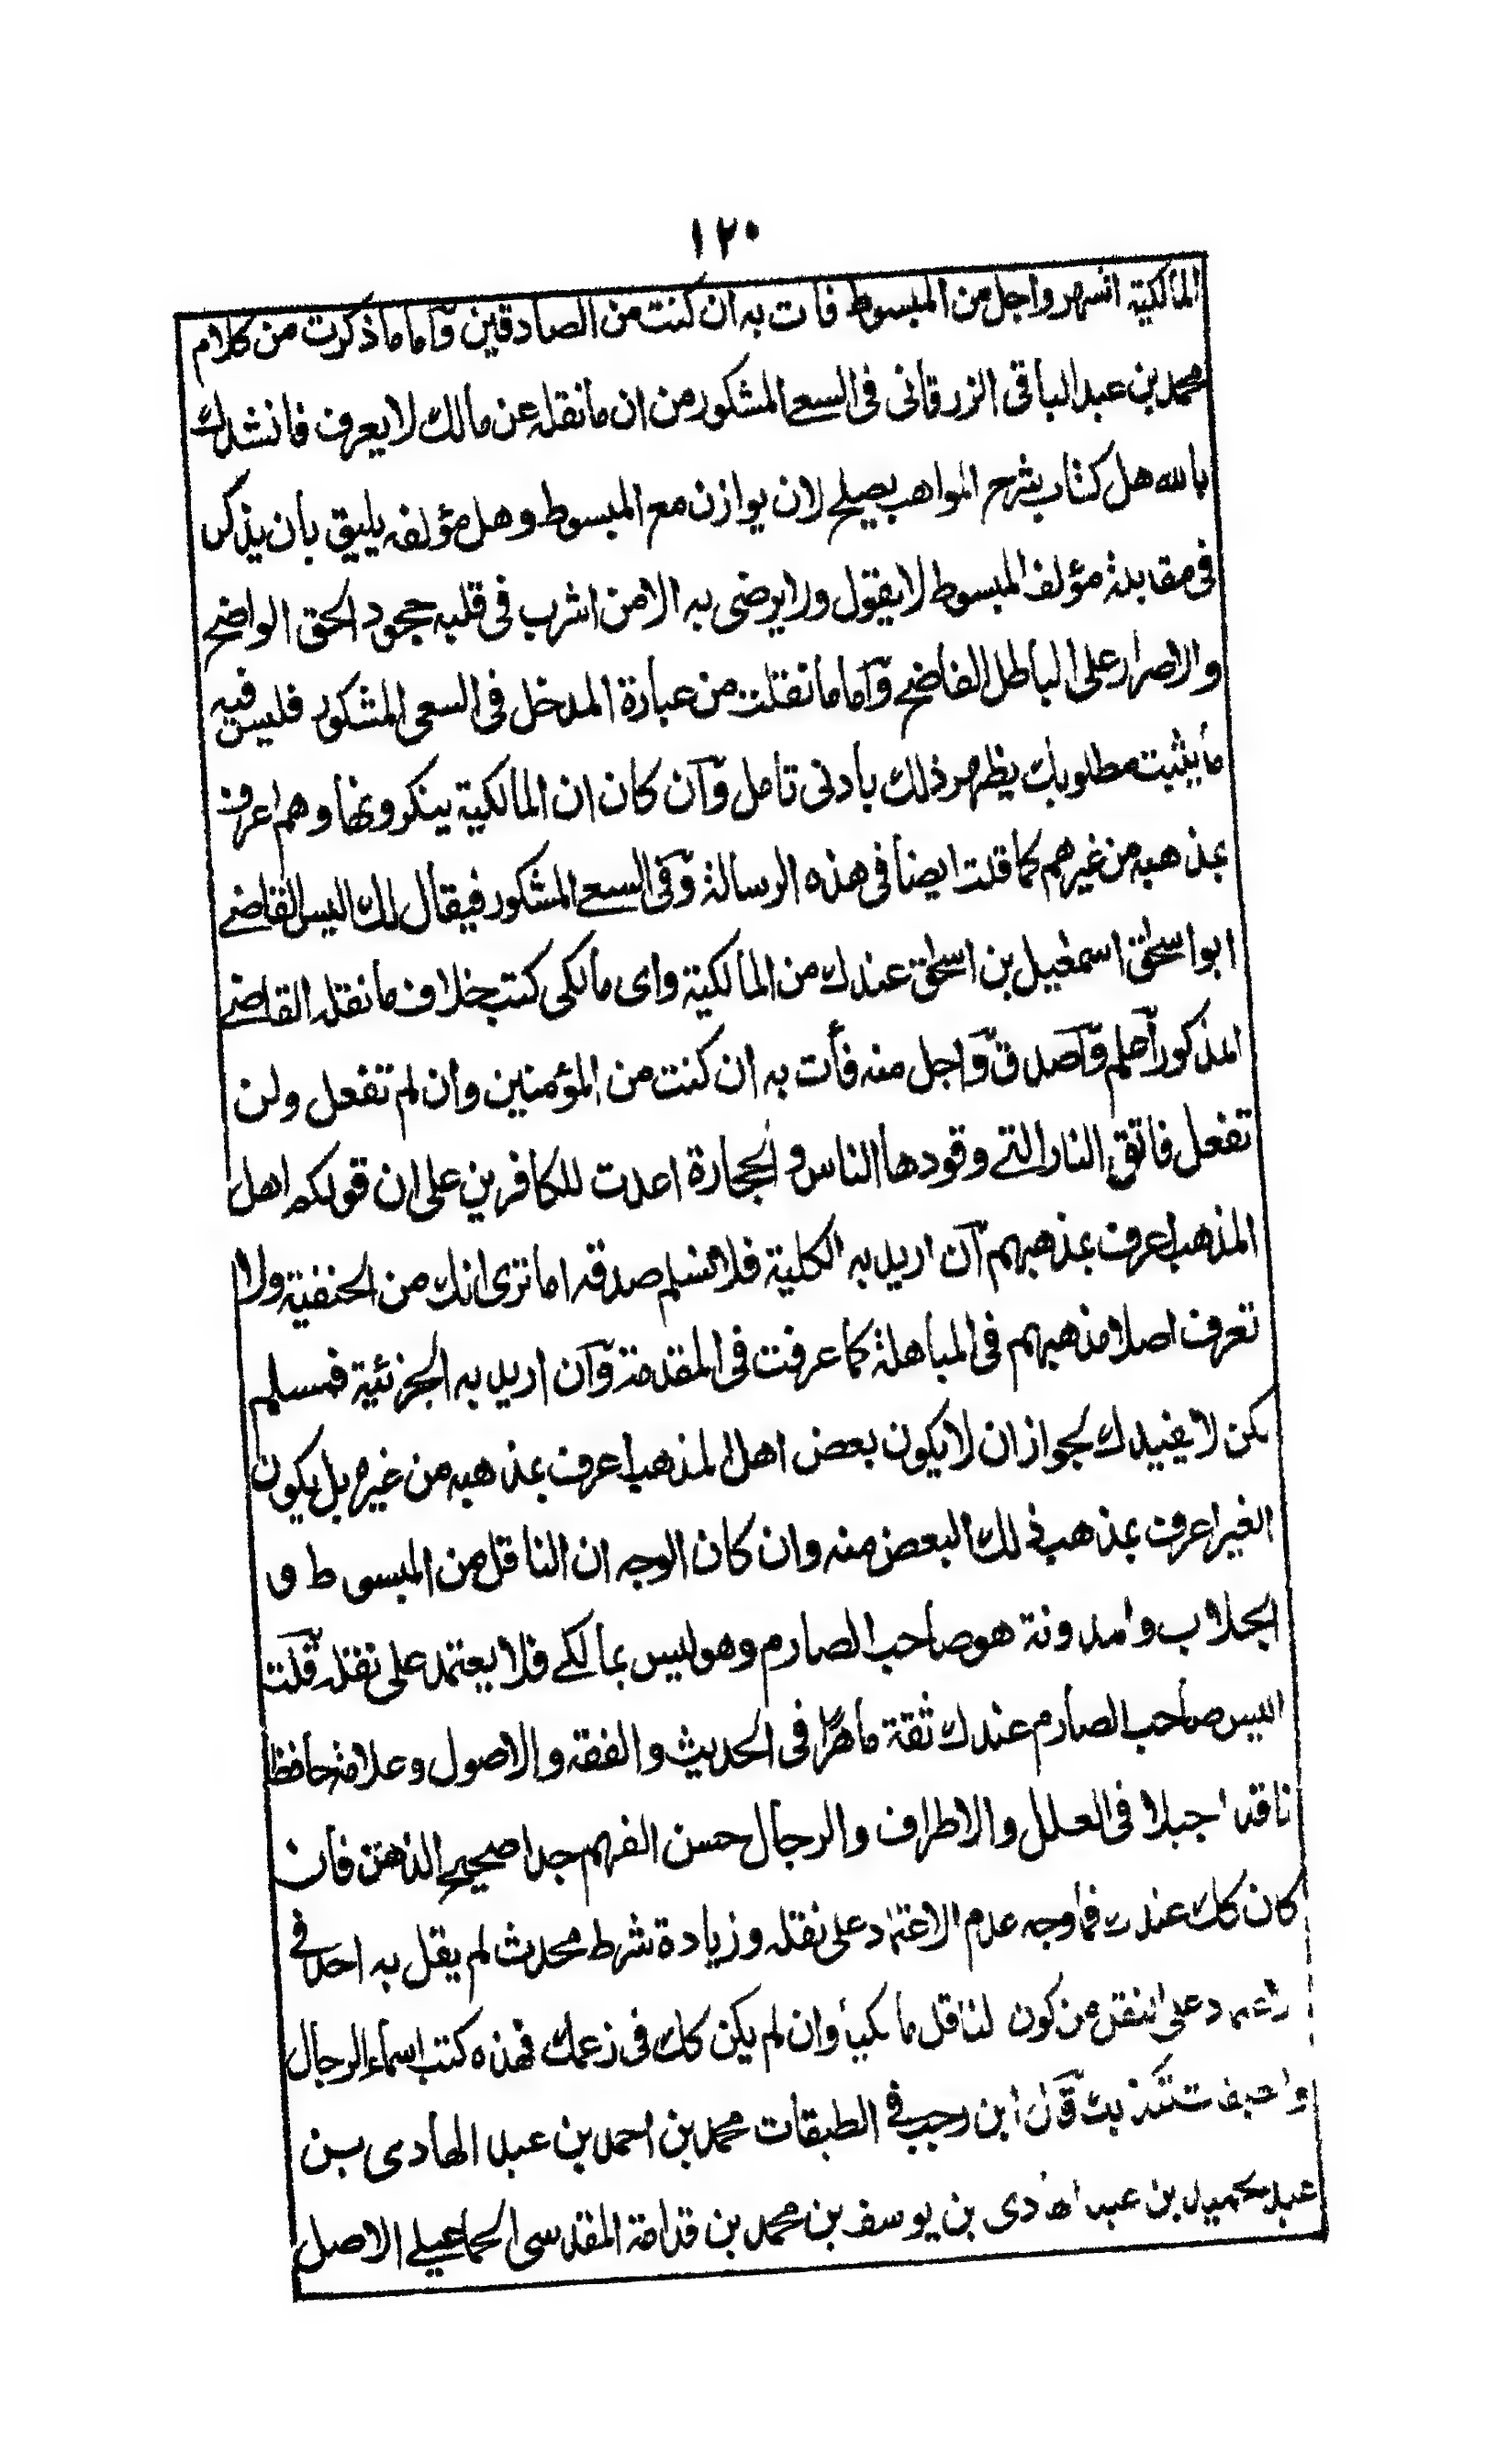 ١٢٠
المالكية اشهر واجل من المبسوط فات به ان كنت من الصادقين وآما ما ذكرت من كلام
محمد بن عبد الباقى الزرقانى فى السعى المشكور من ان ما نقله عن مالك لا يعرف فانشدك
بالله هل كتاب شرح المواهب يصلح لان يوازن مع المبسوط وهل مؤلفه يليق بان يذكر
فى مقابلة مؤلف المبسوط لا يقول ولا يرضى به الا من اشرب فى قلبه جحود الحق الواضح
والاصرار على الباطل الفاضح وآما ما نقلت من عبارة المدخل فى السعى المشكور فليس فيه
ما يثبت مطلوبك يظهر ذلك بادنى تامل وآن كان ان المالكية ينكرونها وهم اعرف
بمذهبه من غيرهم كما قلت ايضا فى هذه الرسالة وفى السعى المشكور فيقال لك اليس القاضى
ابو اسحٰق اسمٰعيل بن اسحٰق عندك من المالكية واى مالكى كتب خلاف ما نقله القاضى
المذكور آعلم وآصدق وآجل منه فأت به ان كنت من المؤمنين وان لم تفعل ولن
تفعل فاتق النار التى وقودها الناس والحجارة اعدت للكافرين على ان قولكم اهل
المذهب اعرف بمذهبهم آن اريد به الكلية فلا نسلم صدقه اما ترى انك من الحنفية ولا
تعرف اصلا مذهبهم فى المباهلة كما عرفت فى المقدمة وآن اريد به الجزئية فمسلم
لكن لا يفيدك لجواز ان لا يكون بعض اهل المذهب اعرف بمذهبه من غيره بل يكون
الغير اعرف بمذهب ذلك البعض منه وان كان الوجه ان الناقل من المبسوط و
الجلاب والمدونة هو صاحب الصارم وهو ليس بمالكى فلا يعتمد على نقله قلت
اليس صاحب الصارم عندك ثقة ماهرًا فى الحديث والفقه والاصول وعلامة حافظا
ناقدا جبلا فى العلل والاطراف والرجال حسن الفهم جدا صحيح الذهن فان
كان كك عندك فما وجه عدم الاعتماد على نقله وزيادة شرط محدث لم يقل به احد فى
الاعتماد على النقل من كون الناقل مالكيا وان لم يكن كك فى زعمك فهذه كتب اسماء الرجال
تكذبك قال ابن رجب فى الطبقات محمد بن احمد بن عبد الهادى بن
عبد الحميد بن عبد الهادى بن يوسف بن محمد بن قدامة المقدسى الجماعيلى الاصل